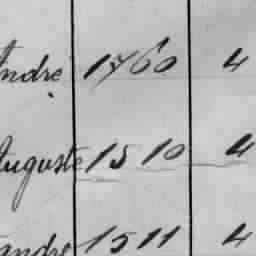 André 1760 4
Auguste 1510 4
André 1511 4